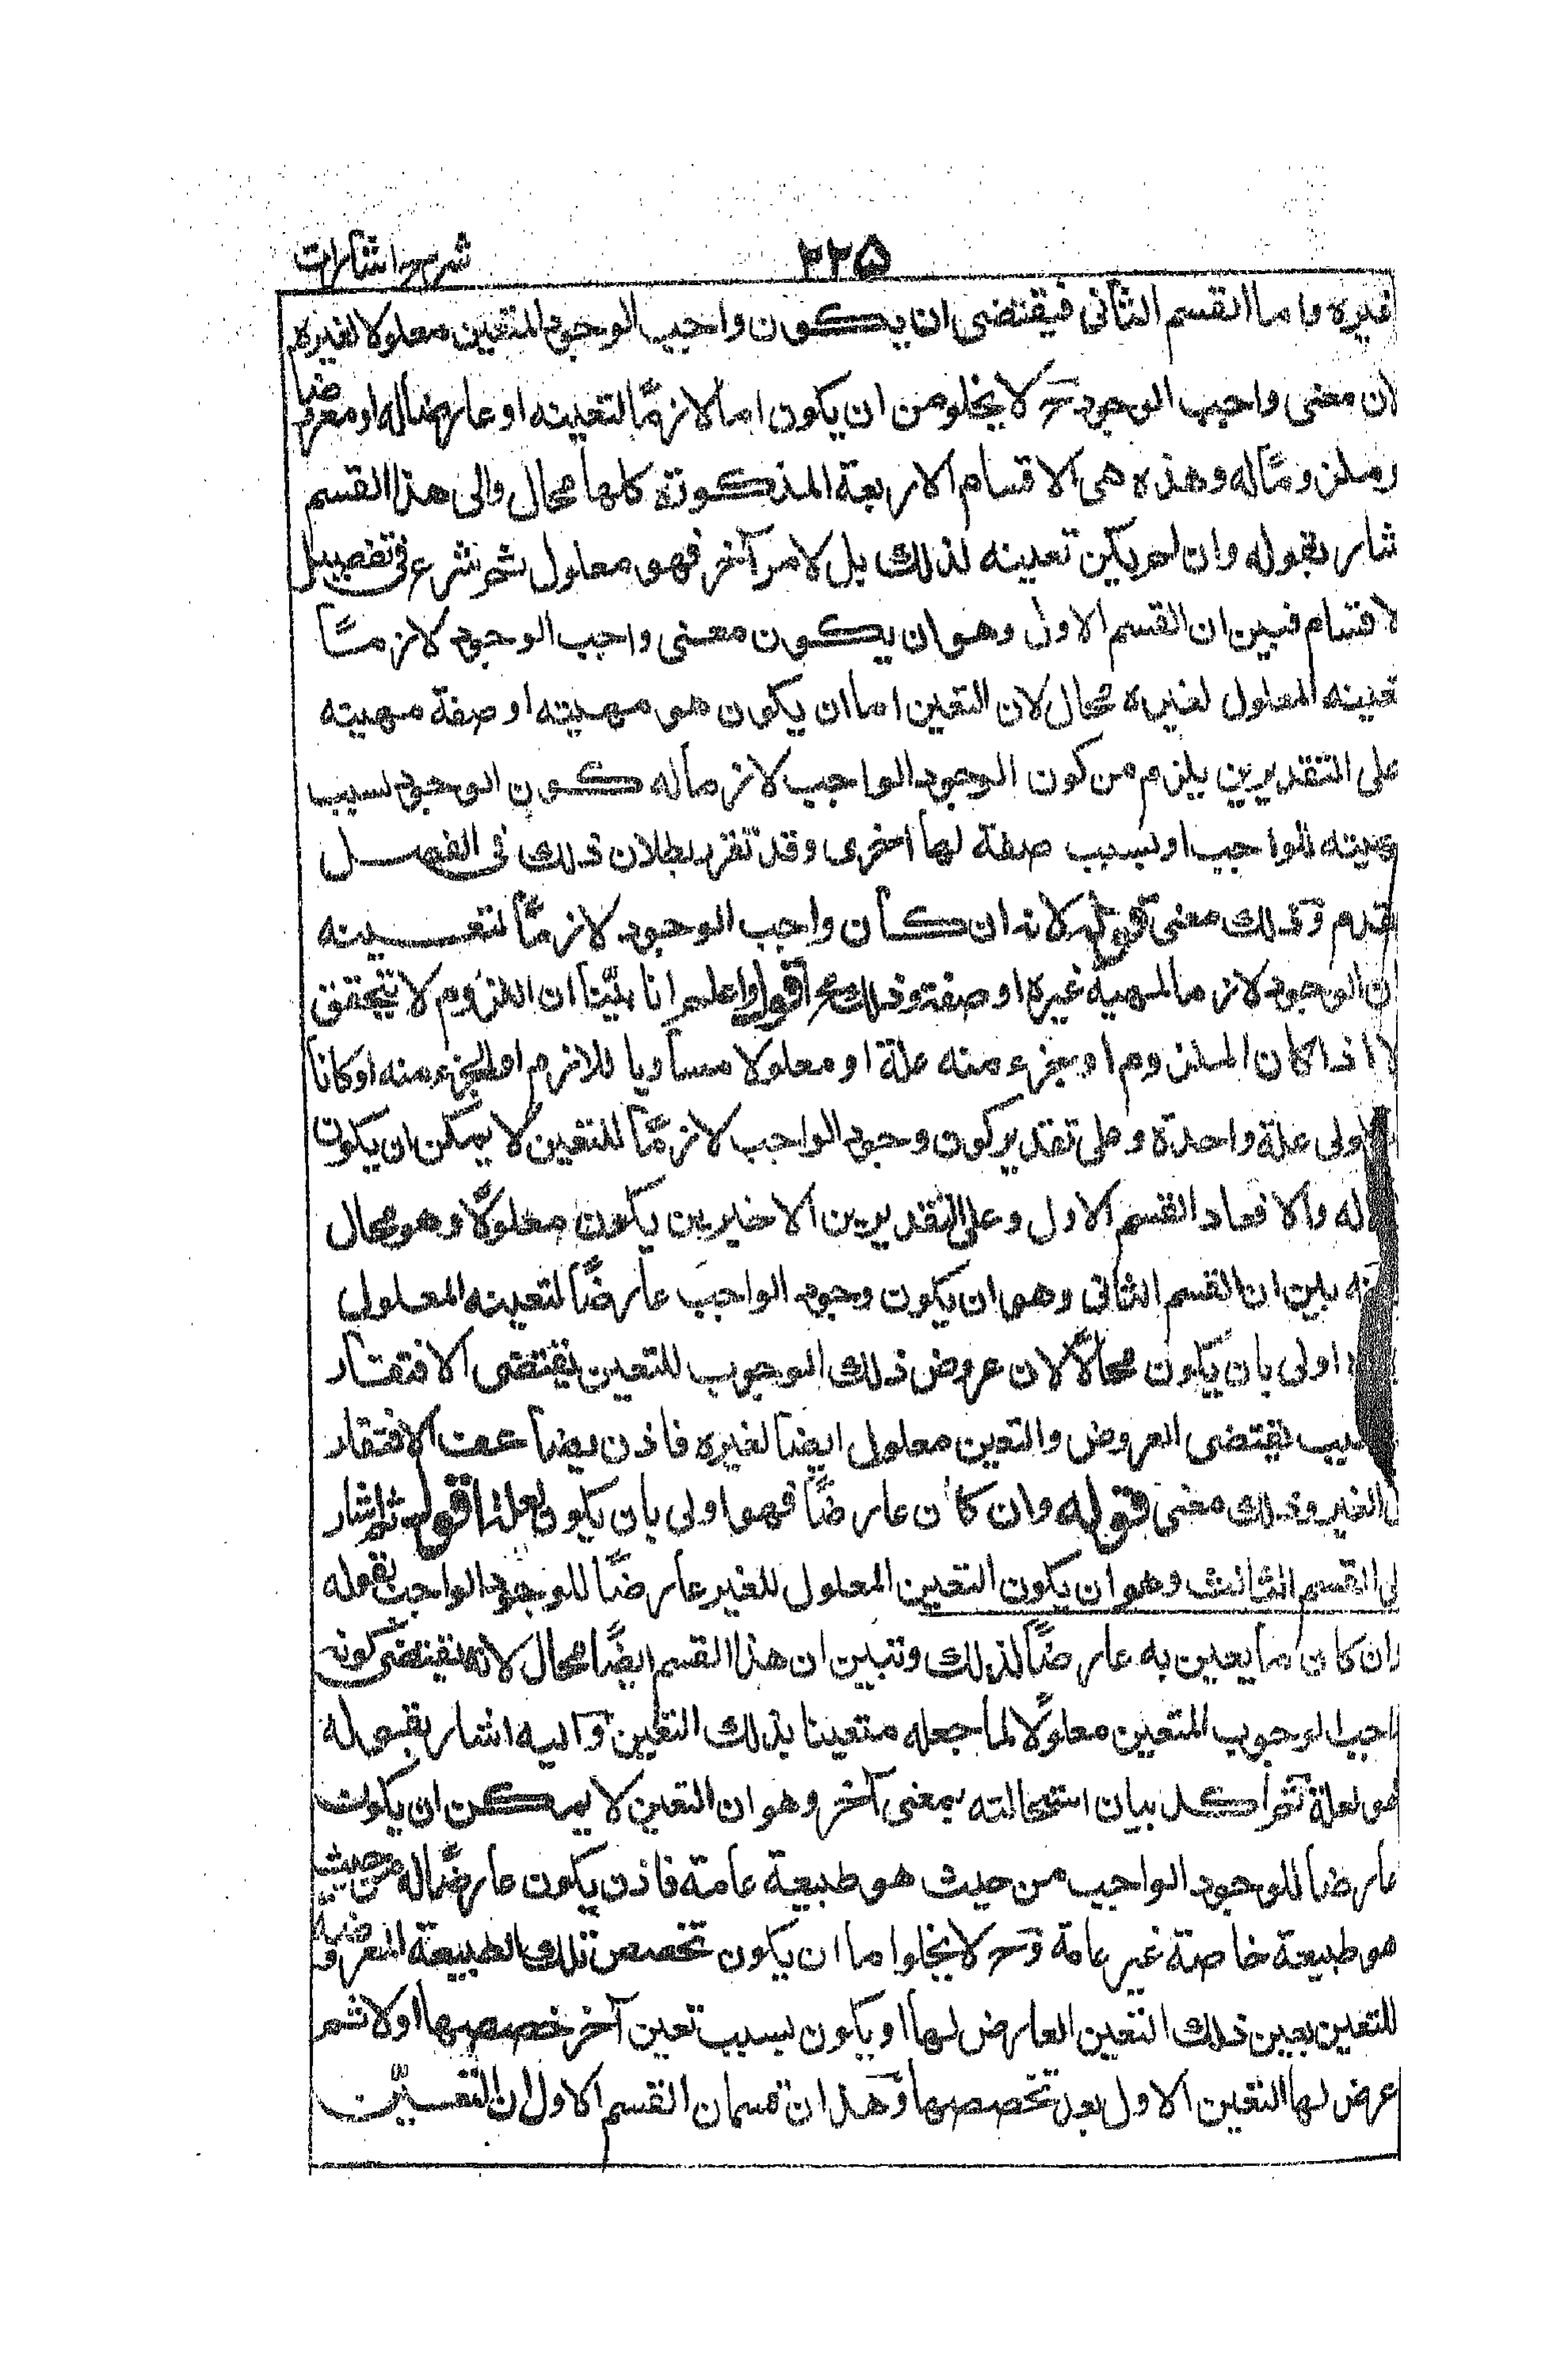 شرح اشارات
٢٢٥
غيره واما القسم الثانى فيقتضى ان يكون واجب الوجود المتعين معلولا لغيره
لان معنى واجب الوجود ح لا يخلو من ان يكون اما لازمًا لتعينه او عارضا له او معروضا
وملزومًا له وهذه هى الاقسام الاربعة المذكورة كلها محال والى هذا القسم
شار بقوله وان لم يكن تعينه لذلك بل لامر آخر فهو معلول ثم شرع فى تفصيل
لاقسام فبين ان القسم الاول وهو ان يكون معنى واجب الوجود لازمًا
تعينه المعلول لغيره محال لان التعين اما ان يكون هو مهيته او صفة مهيته
على التقديرين يلزم من كون الوجود الواجب لازما له كون الوجود بسبب
مهيته للواجب او بسبب صفة لها اخرى وقد تقرر بطلان ذلك فى الفصل
قدم وذلك معنى قوله لانه ان كان واجب الوجود لازمًا لتعينه
ان الوجود لازما لمهية غيره او صفته وذلك مح اقول واعلم انا بيّنا ان اللزوم لا يتحقق
لا اذا كان الملزوم او جزء منه علة او معلولا مساويا للازم او لجزء منه او كانا
ولى علة واحدة وعلى تقدير كون وجود الواجب لازمًا للتعين لا يمكن ان يكون
له والا فعاد القسم الاول وعلى التقديرين الاخيرين يكون معلولًا وهو محال
نه بين ان القسم الثانى وهو ان يكون وجود الواجب عارضًا لتعينه المعلول
اولى بان يكون محالًا لان عروض ذلك الوجوب للتعين يقتضى الافتقار
سبب يقتضى العروض والتعين معلول ايضا لغيره فاذن يضاعف الافتقار
الغير وذلك معنى قوله وان كان عارضًا فهو اولى بان يكون لعلة اقول ثم اشار
لى القسم الثالث وهو ان يكون التعين المعلول للغير عارضًا للوجود الواجب بقوله
وان كان ما يعين به عارضًا لذلك وتبين ان هذا القسم ايضًا محال لانه يقتضى كونه
اجب الوجوب المتعين معلولًا لما جعله متعينا بذلك التعين واليه اشار بقوله
فهو لعلة ثم اكد بيان استحالته بمعنى آخر وهو ان التعين لا يمكن ان يكون
عارضا للوجود الواجب من حيث هو طبيعة عامة فاذن يكون عارضًا له من حيث
هو طبيعة خاصة غير عامة وح لا يخلوا ما ان يكون تخصص تلك الطبيعة المعروضة
للتعين بعين ذلك التعين العارض لها او يكون بسبب تعين آخر خصصها اولا ثم
عرض لها التعين الاول بعد تخصصها وهذان قسمان القسم الاول ان التعين